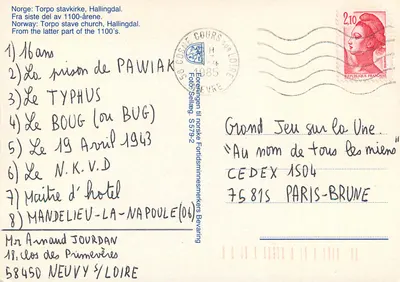 Norge: Torpo stavkirke, Hallingdal.
Fra siste del av 1100-årene.
Norway: Torpo stave church, Hallingdal.
From the latter part of the 1100's.
1) 16 ans
2) La prison de PAWIAK
3) Le TYPHUS
4) Le BOUG (ou BUG)
5) Le 19 Avril 1943
6) Le N.K.V.D
7) Maitre d'hotel
8) MANDELIEU-LA-NAPOULE (06)
Mr Arnaud JOURDAN
18, Clos des Primevères
58450 NEUVY S/LOIRE
Foreningen til norske Fortidsminnesmerkers Bevaring
S 579-2
58 COSNE COURS SUR LOIRE
1985
NIEVRE
2,10
Grand Jeu sur la Une.
"Au nom de tous les miens"
CEDEX 1504
75815 PARIS-BRUNE